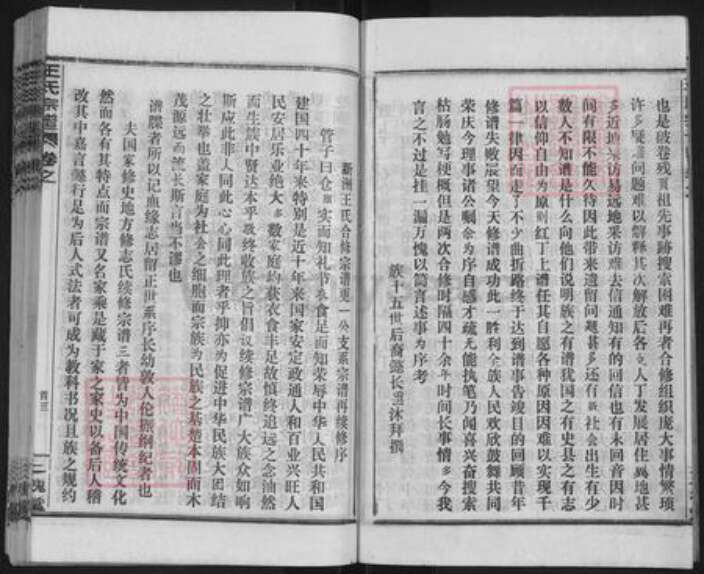 也是破卷残頁祖先事跡搜索困难再者合修组织庞大事情繁琐
许多疑难问题难以解释其次解放后各支人丁发展居住異地甚
多近地采访易远地采访难去信通知有的回信也有未回音因时
间有限不能久待因此带来遗留问题甚多还有新社会出生有少
数人不知谱是什么向他们说明族之有谱犹国之有史县之有志
以信仰自由为原则红丁上谱任其自愿各种原因因难以实现千
篇一律因而走了不少曲折路终于达到谱事告竣目的回顾昔年
修谱失败展望今天修谱成功此一胜利全族人民欢欣鼓舞共同
荣庆今理事诸公嘱余为序自感才疏无能执笔乃闻喜兴奋搜索
枯肠勉写梗概但是两次合修时隔四十余年时间长事情多今我
言之不过是挂一漏万愧以简言述事为序考
族十五世后裔懿长重沐拜撰
王氏宗谱 卷之
新洲王氏合修宗谱更一公支系宗谱再续修序
管子曰仓廪实而知礼节衣食足而知荣辱中华人民共和国
建国四十年来特别是近十年来国家安定政通人和百业兴旺人
民安居乐业绝大多数家庭均获衣食丰足故慎终追远之念油然
而生族中贤达本乎敬终收族之旨倡议续修宗谱广大族众如响
斯应此非人同此心心同此理者乎抑亦为促进中华民族大团结
之壮举也盖家庭为社会之细胞而宗族为民族之基楚本固而木
茂源远而流长斯言当不谬也
谱牒者所以记血缘志居留正世系序长幼敦人伦振纲纪者也
夫国家修史地方修志氏族续修宗谱三者皆为中国传统文化
然而各有其特点而宗谱又名家乘是藏于家之家史以备后人稽
改其中嘉言懿行足为后人式法者可成为教科书况且族之规约
首三
三槐堂